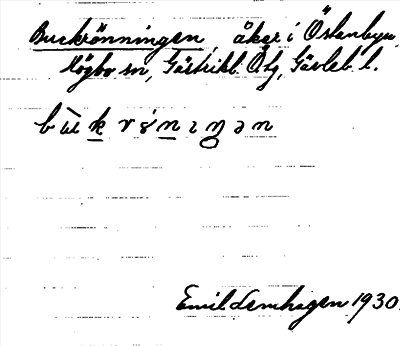 Buckrönningen, åker i Östanbyn,
Högbo sn, Gästrikl. Ötg, Gävleb. l.
Emil Lemhagen 1930.